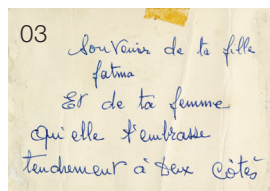 03
Souvenir de ta fille
fatma
Et de ta femme
qui elle t'embrasse
tendrement à Deux Côtés